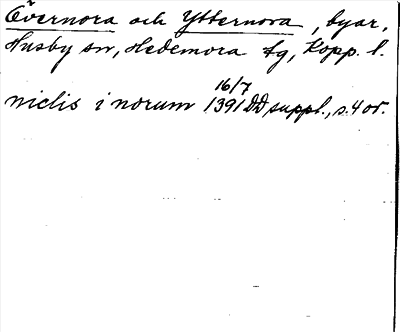 Övernora och Ytternora, byar,
Husby sn, Hedemora tg, Kopp. l.
niclis i norum 16/7 1391 DD suppl., s. 4 or.